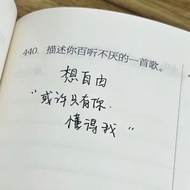 440. 描述你百听不厌的一首歌。
想自由
“或许只有你
懂得我”